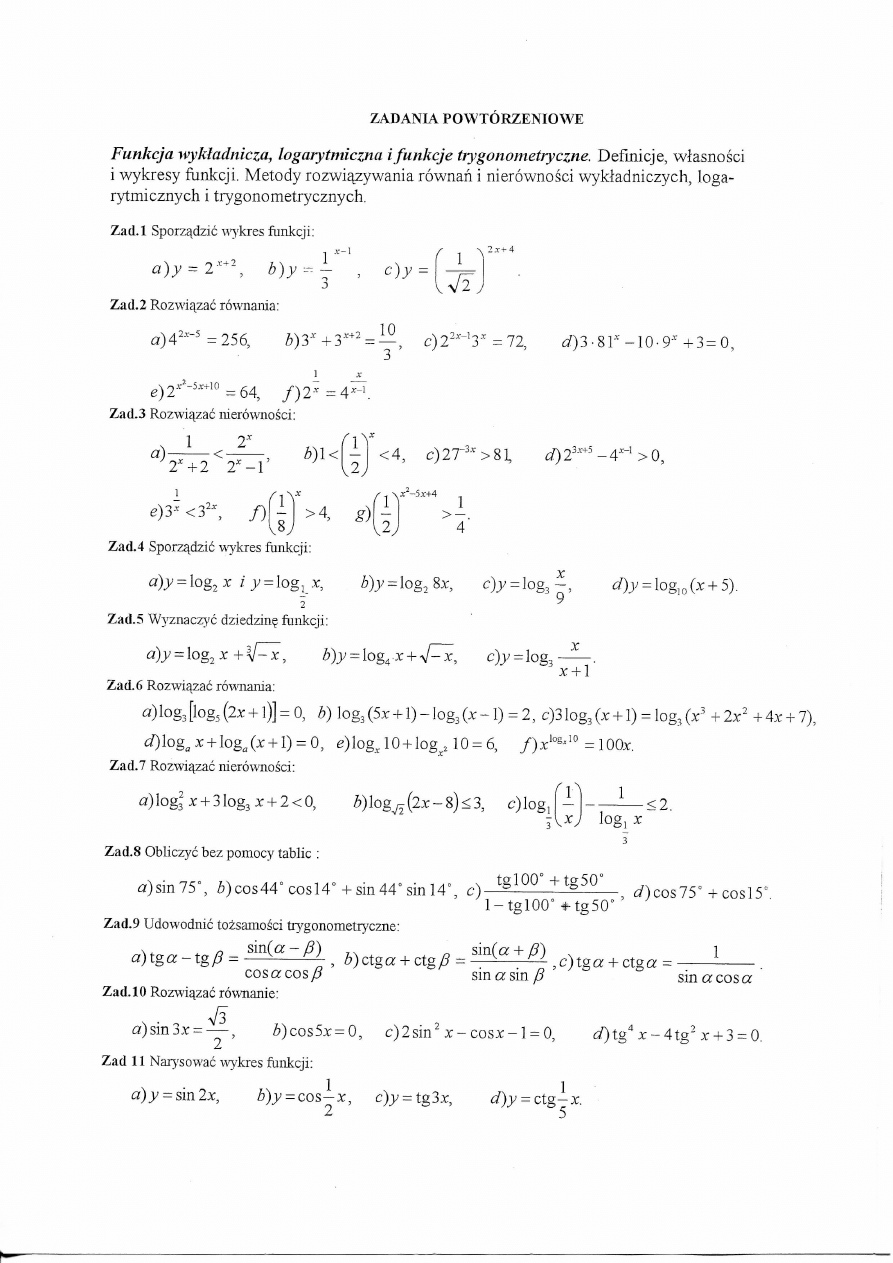 ZADANIA POWTÓRZENIOWE
Funkcja wykładnicza, logarytmiczna i funkcje trygonometryczne. Definicje, własności
i wykresy funkcji. Metody rozwiązywania równań i nierówności wykładniczych, loga-
rytmicznych i trygonometrycznych.
Zad.1 Sporządzić wykres funkcji:
a) y = 2^{x+2}, b) y = \frac{1}{3}^{x-1}, c) y = \left(\frac{1}{\sqrt{2}}\right)^{2x+4}.
Zad.2 Rozwiązać równania:
a) 4^{2x-5} = 256, b) 3^x + 3^{x+2} = \frac{10}{3}, c) 2^{2x-1}3^x = 72, d) 3·81^x − 10·9^x + 3 = 0,
e) 2^{x^2-5x+10} = 64, f) 2^{\frac{1}{x}} = 4^{\frac{x}{x-1}}.
Zad.3 Rozwiązać nierówności:
a) \frac{1}{2^x+2} < \frac{2^x}{2^x-1}, b) 1 < \left(\frac{1}{2}\right)^x < 4, c) 27^{-3x} > 81, d) 2^{3x+5} − 4^{x-1} > 0,
e) 3^{\frac{1}{x}} < 3^{2x}, f) \left(\frac{1}{8}\right)^x > 4, g) \left(\frac{1}{2}\right)^{x^2-5x+4} > \frac{1}{4}.
Zad.4 Sporządzić wykres funkcji:
a) y = log_2 x i y = log_{\frac{1}{2}} x, b) y = log_2 8x, c) y = log_3 \frac{x}{9}, d) y = log_{10}(x + 5).
Zad.5 Wyznaczyć dziedzinę funkcji:
a) y = log_2 x + \sqrt[3]{-x}, b) y = log_4 x + \sqrt{-x}, c) y = log_3 \frac{x}{x+1}.
Zad.6 Rozwiązać równania:
a) log_3[log_5(2x+1)] = 0, b) log_3(5x+1) − log_3(x−1) = 2, c) 3log_3(x+1) = log_3(x^3 + 2x^2 + 4x + 7),
d) log_a x + log_a(x+1) = 0, e) log_x 10 + log_{x^2} 10 = 6, f) x^{log_x 10} = 100x.
Zad.7 Rozwiązać nierówności:
a) log_3^2 x + 3log_3 x + 2 < 0, b) log_{\sqrt{2}}(2x−8) ≤ 3, c) log_{\frac{1}{3}}\left(\frac{1}{x}\right) − \frac{1}{log_{\frac{1}{3}} x} ≤ 2.
Zad.8 Obliczyć bez pomocy tablic :
a) sin 75°, b) cos44° cos14° + sin 44° sin 14°, c) \frac{tg100° + tg50°}{1 − tg100° * tg50°}, d) cos75° + cos15°.
Zad.9 Udowodnić tożsamości trygonometryczne:
a) tgα − tgβ = \frac{sin(α − β)}{cosα cosβ}, b) ctgα + ctgβ = \frac{sin(α + β)}{sin α sin β}, c) tgα + ctgα = \frac{1}{sin α cosα}.
Zad.10 Rozwiązać równanie:
a) sin 3x = \frac{\sqrt{3}}{2}, b) cos5x = 0, c) 2sin^2 x − cosx − 1 = 0, d) tg^4 x − 4tg^2 x + 3 = 0.
Zad 11 Narysować wykres funkcji:
a) y = sin 2x, b) y = cos\frac{1}{2}x, c) y = tg3x, d) y = ctg\frac{1}{5}x.